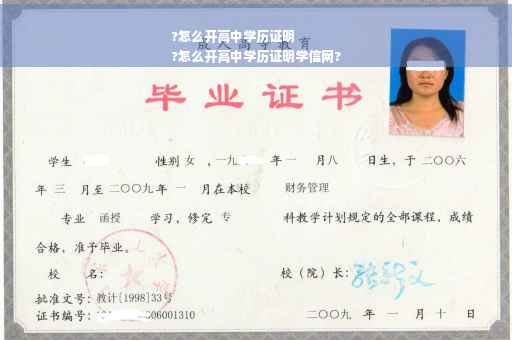 ?怎么开高中学历证明
?怎么开高中学历证明学信网?
成人高等教育
毕业证书
学生 性别 女 ,一九 年 一 月八 日生,于 二〇〇六
年 三 月至 二〇〇九 年 一 月在本校 财务管理
专业 函授 学习,修完 专 科教学计划规定的全部课程,成绩
合格,准予毕业。
校 名: 校(院)长:
批准文号:教计[1998]33号
证书编号: 06001310 二〇〇九 年 一 月 十 日